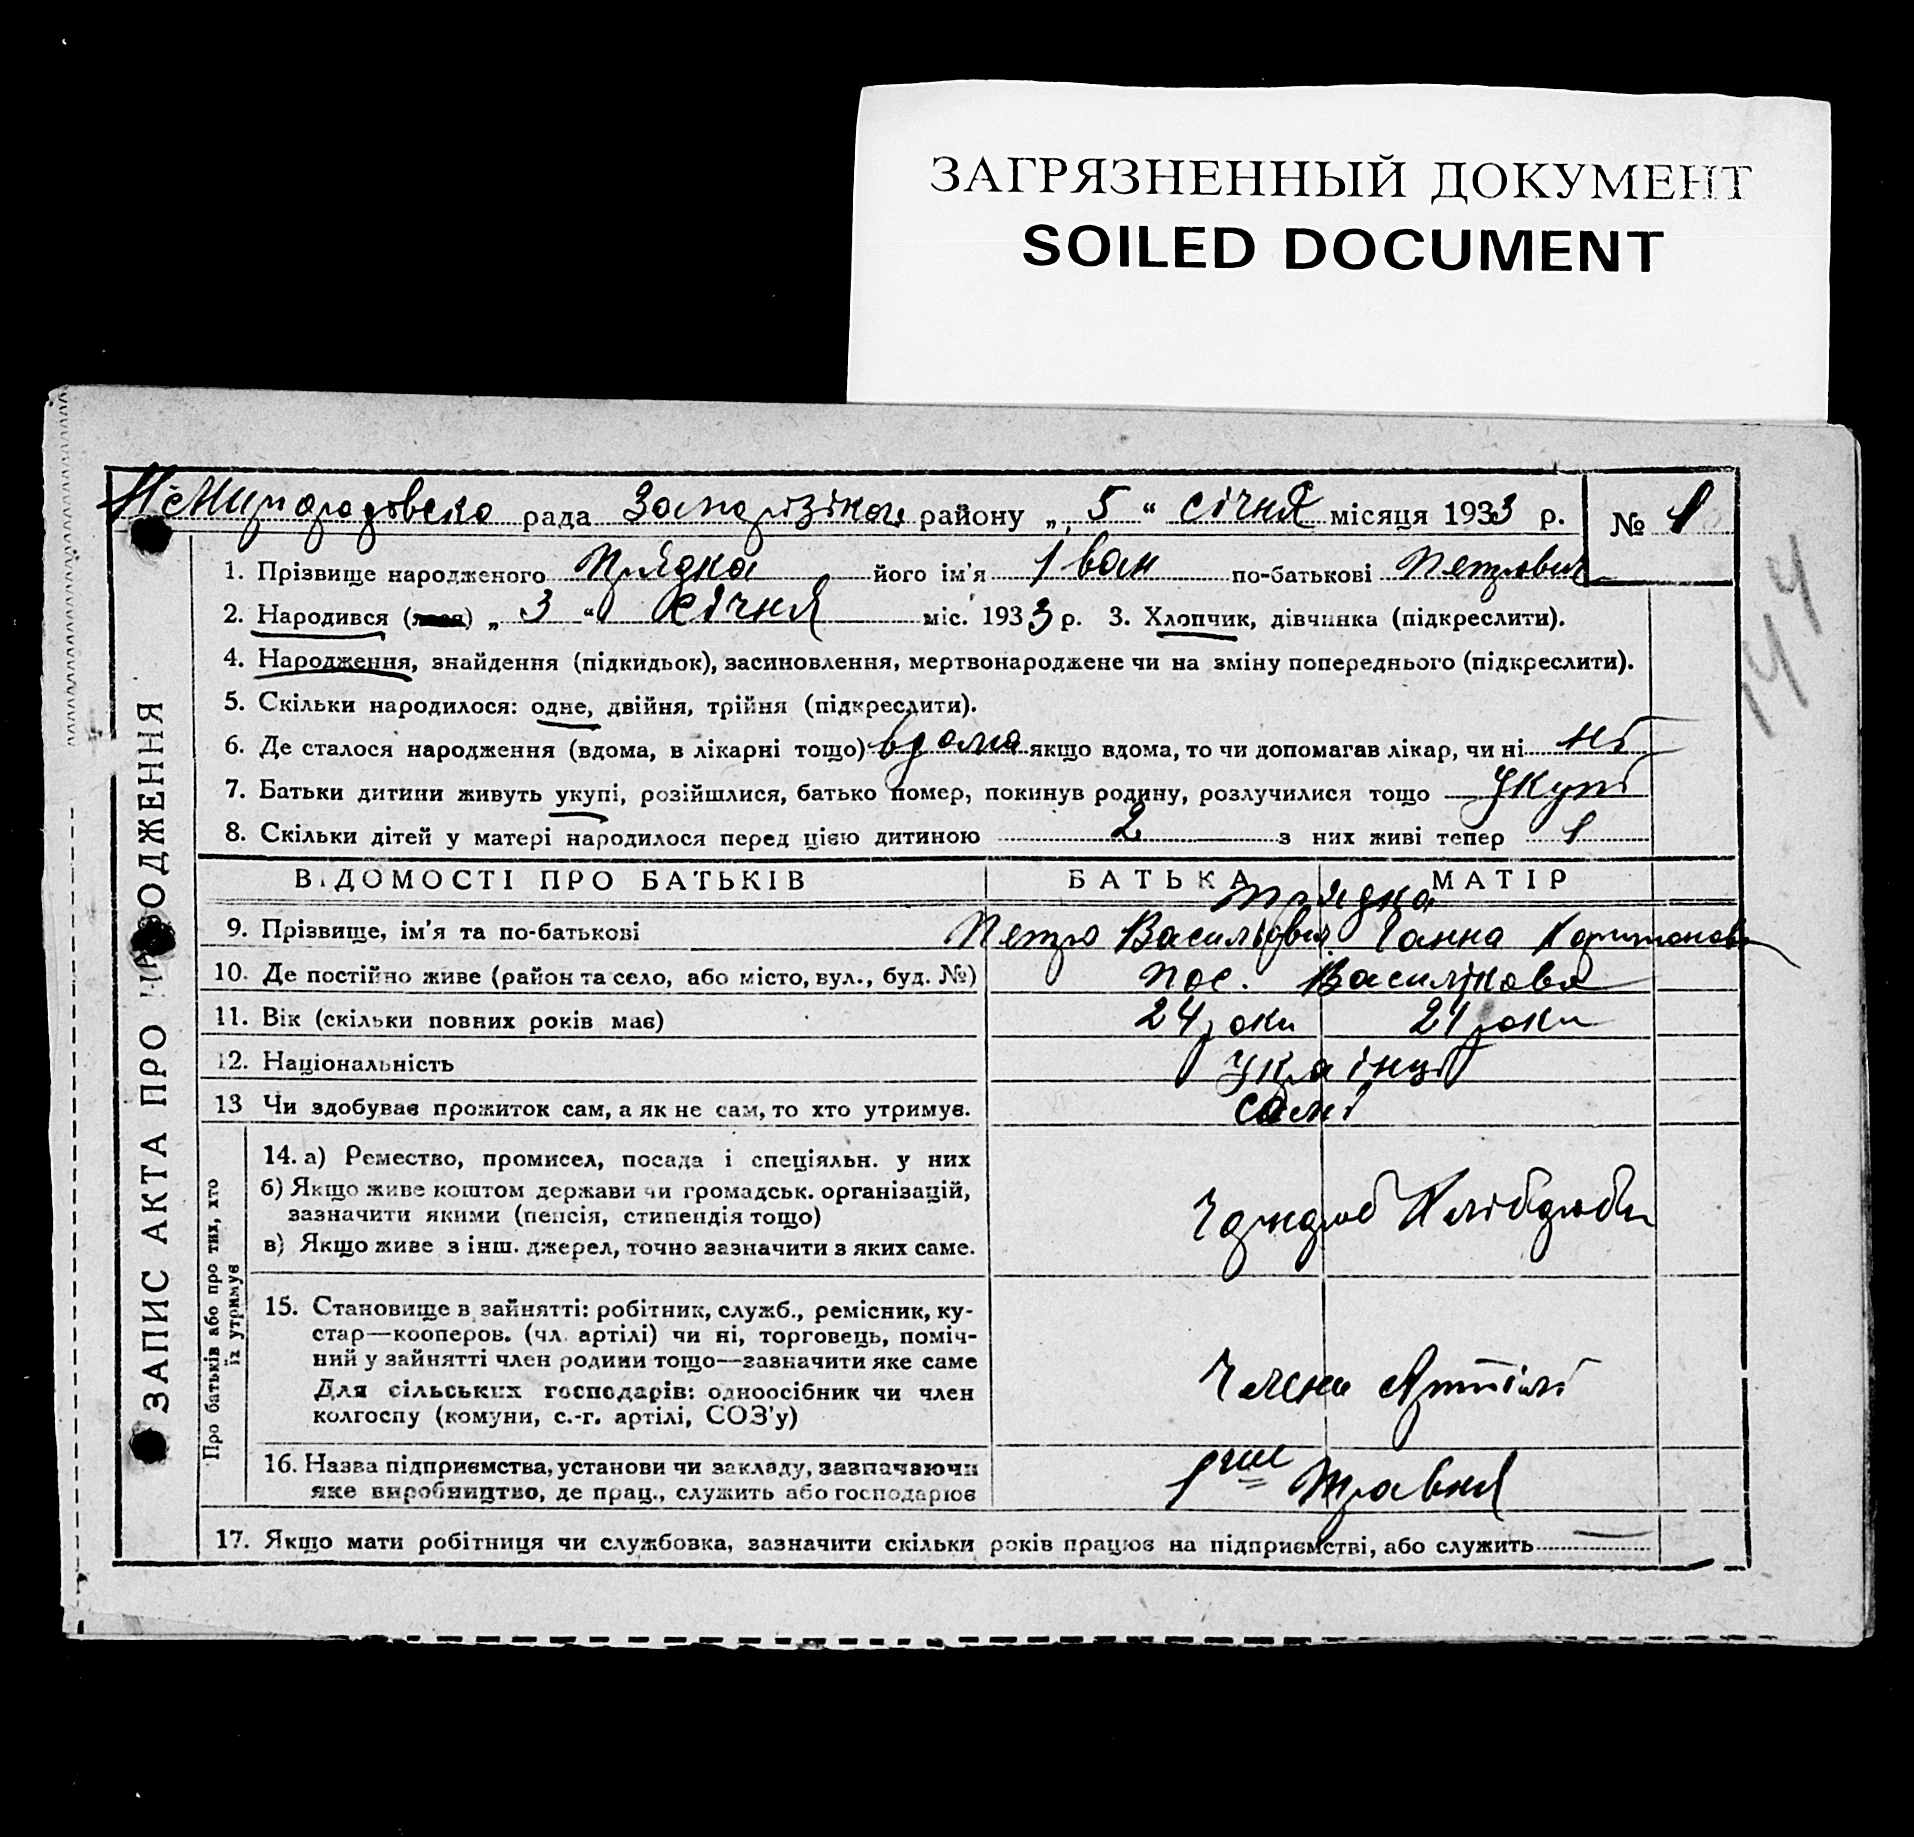 ЗАГРЯЗНЕННЫЙ ДОКУМЕНТ
SOILED DOCUMENT
рада району „ 5 “ січня місяця 1933 р. № 1
144
ЗАПИС АКТА ПРО НАРОДЖЕННЯ
1. Прізвище народженого Прядка його ім'я Іван по-батькові Петрович
2. Народився (лася) „ 3 “ січня міс. 1933 р. 3. Хлопчик, дівчинка (підкреслити).
4. Народження, знайдення (підкидьок), засиновлення, мертвонароджене чи на зміну попереднього (підкреслити).
5. Скільки народилося: одне, двійня, трійня (підкреслити).
6. Де сталося народження (вдома, в лікарні тощо) вдома якщо вдома, то чи допомагав лікар, чи ні ні
7. Батьки дитини живуть укупі, розійшлися, батько помер, покинув родину, розлучилися тощо Укупі
8. Скільки дітей у матері народилося перед цією дитиною 2 з них живі тепер 1
ВІДОМОСТІ ПРО БАТЬКІВ БАТЬКА МАТІР
Прядка
9. Прізвище, ім'я та по-батькові Петро Васильович Ганна
10. Де постійно живе (район та село, або місто, вул., буд. №) пос. Василівка
11. Вік (скільки повних років має) 24 роки 21 роки
12. Національність Українці
13 Чи здобуває прожиток сам, а як не сам, то хто утримує. самі
Про батьків або про тих, хто
їх утримує
14. а) Ремество, промисел, посада і спеціяльн. у них
б) Якщо живе коштом держави чи громадськ. організацій,
зазначити якими (пенсія, стипендія тощо)
в) Якщо живе з інш. джерел, точно зазначити з яких саме.
Хлібороби
15. Становище в зайнятті: робітник, служб., ремісник, ку-
стар—кооперов. (чл. артілі) чи ні, торговець, поміч-
ний у зайнятті член родини тощо—зазначити яке саме
Для сільських господарів: одноосібник чи член
колгоспу (комуни, с.-г. артілі, СОЗ'у)
Члени Артілі
16. Назва підприємства, установи чи закладу, зазначаючи
яке виробництво, де прац., служить або господарює
1ше Травня
17. Якщо мати робітниця чи службовка, зазначити скільки років працює на підприємстві, або служить —